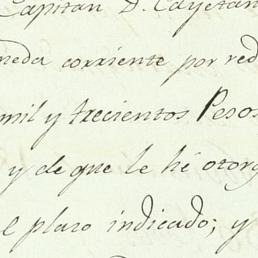 Capitan D. Cayetan
neda corriente por red
mil y trecientos Pesos
y de que le hé otorg
el plazo indicado; y